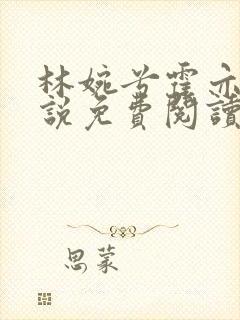 林婉兮霍亦
說免費閱讀
思蒙